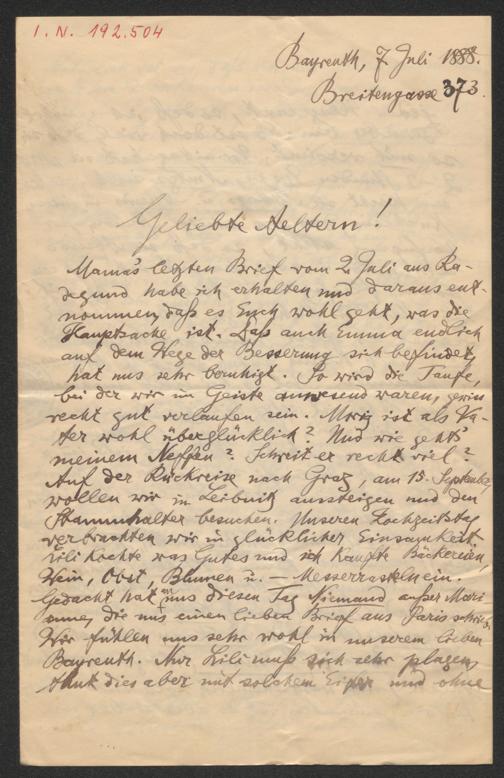 I. N. 192.504
Bayreuth, 7. Juli 1888.
Breitengasse 373.
Geliebte Aeltern!
Mama's letzten Brief vom 2. Juli aus Ra-
degund habe ich erhalten und daraus ent-
nommen, daß es Euch wohl geht, was die
Hauptsache ist. Daß auch Emma endlich
auf dem Wege der Besserung sich befindet,
hat uns sehr beruhigt. So wird die Taufe,
bei der wir im Geiste anwesend waren, gewiss
recht gut verlaufen sein. Moriz ist als Va-
ter wohl überglücklich? Und wie geht's
meinem Neffen? Schreit er recht viel?
Auf der Rückreise nach Graz, am 15. September
wollen wir in Leibnitz aussteigen und den
Stammhalter besuchen. Unseren Hochzeitstag
verbrachten wir in glücklicher Einsamkeit.
Lili kochte was Gutes und ich kaufte Bäckereien
Wein, Obst, Blumen u. — Messerrasteln ein.
Gedacht hat an uns diesen Tag Niemand außer Mari
anne, die uns einen lieben Brief aus Paris schrieb.
Wir fühlen uns sehr wohl in unserem lieben
Bayreuth. Nur Lili muß sich sehr plagen,
thut dies aber mit solchem Eifer und ohne